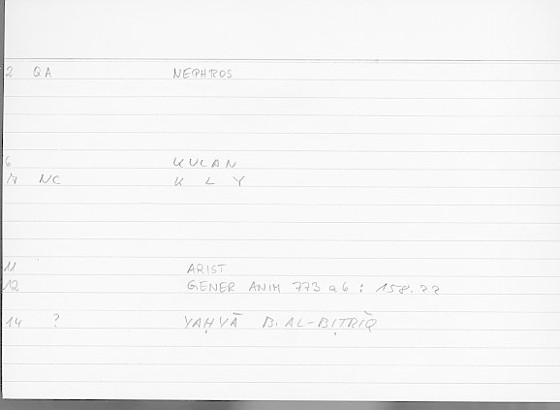 2 QA NEPHROS
6 KULAN
17 NC K L Y
11 ARIST
12 GENER ANIM 773 a6 : 158.22
14 ? YAḤYĀ B. AL-BIṬRĪQ